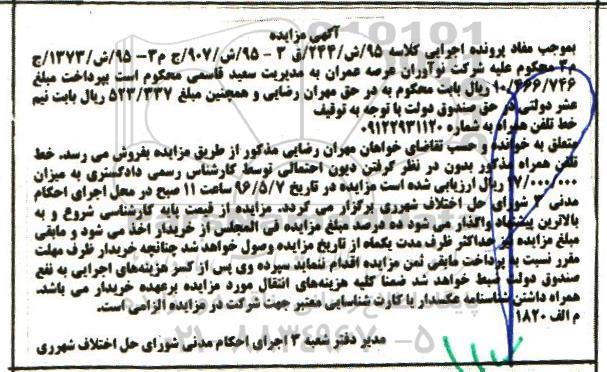 آگهی مزایده
بموجب مفاد پرونده اجرایی کلاسه ۹۵/ش/۲۴۴/ق ۳ - ۹۵/ش/۹۰۷/ج م۳- ۹۵/ش/۱۳۷۳/ج
م۳ محکوم علیه شرکت نوآوران عرصه عمران به مدیریت سعید قاسمی محکوم است بپرداخت مبلغ
۱۰/۶۶۶/۷۴۶ ریال بابت محکوم به در حق مهران رضایی و همچنین مبلغ ۵۲۳/۳۳۷ ریال بابت نیم
عشر دولتی در حق صندوق دولت با توجه به توقیف
خط تلفن همراه به شماره ۰۹۱۲۲۹۳۱۱۲۰
متعلق به خوانده و حسب تقاضای خواهان مهران رضایی مذکور از طریق مزایده بفروش می رسد. خط
تلفن همراه مذکور بدون در نظر گرفتن دیون احتمالی توسط کارشناس رسمی دادگستری به میزان
۱۷/۰۰۰/۰۰۰ ریال ارزیابی شده است مزایده در تاریخ ۹۶/۵/۷ ساعت ۱۱ صبح در محل اجرای احکام
مدنی ۳ شورای حل اختلاف شهرری برگزار می گردد. مزایده از قیمت پایه کارشناسی شروع و به
بالاترین پیشنهاد واگذار می شود ده درصد مبلغ مزایده فی المجلس از خریدار اخذ می شود و مابقی
مبلغ مزایده نیز حداکثر ظرف مدت یکماه از تاریخ مزایده وصول خواهد شد چنانچه خریدار ظرف مهلت
مقرر نسبت به پرداخت مابقی ثمن مزایده اقدام ننماید سپرده وی پس از کسر هزینه‌های اجرایی به نفع
صندوق دولت ضبط خواهد شد ضمنا کلیه هزینه‌های انتقال مورد مزایده برعهده خریدار می باشد.
همراه داشتن شناسنامه عکسدار یا کارت شناسایی معتبر جهت شرکت در مزایده الزامی است.
م الف ۱۸۲۰
مدیر دفتر شعبه ۳ اجرای احکام مدنی شورای حل اختلاف شهرری